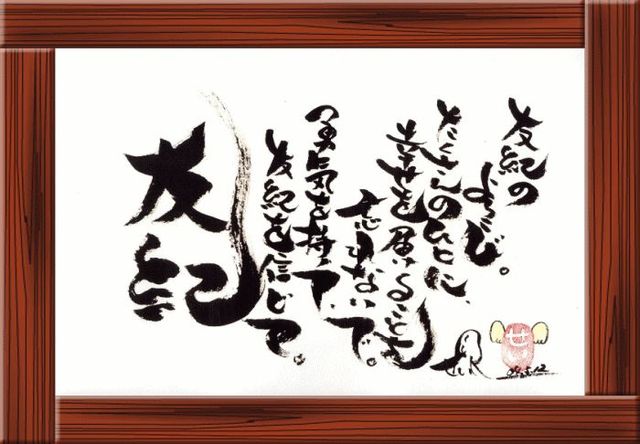 友紀の
よろこび。
たくさんのひとに、
幸せを届けることを
忘れないで。
勇気を持って、
友紀を信じて。
友紀